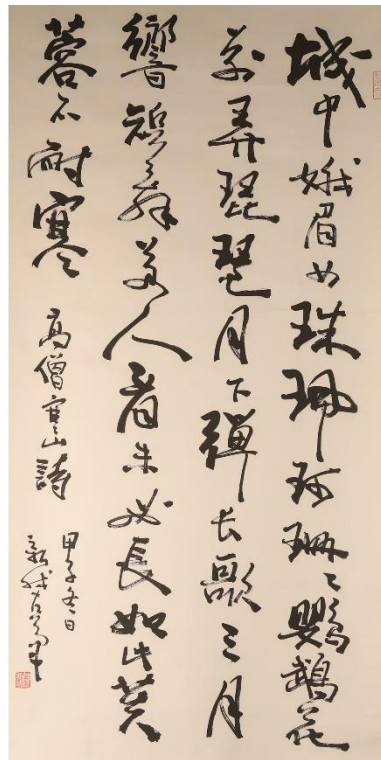 城中娥眉女珠珮珂珊々鸚鵡花
前弄琵琶月下彈长歌三月
響短舞萬人看未必長如此芙
蓉不耐寒 高僧寒山詩
甲子冬日
新我左筆